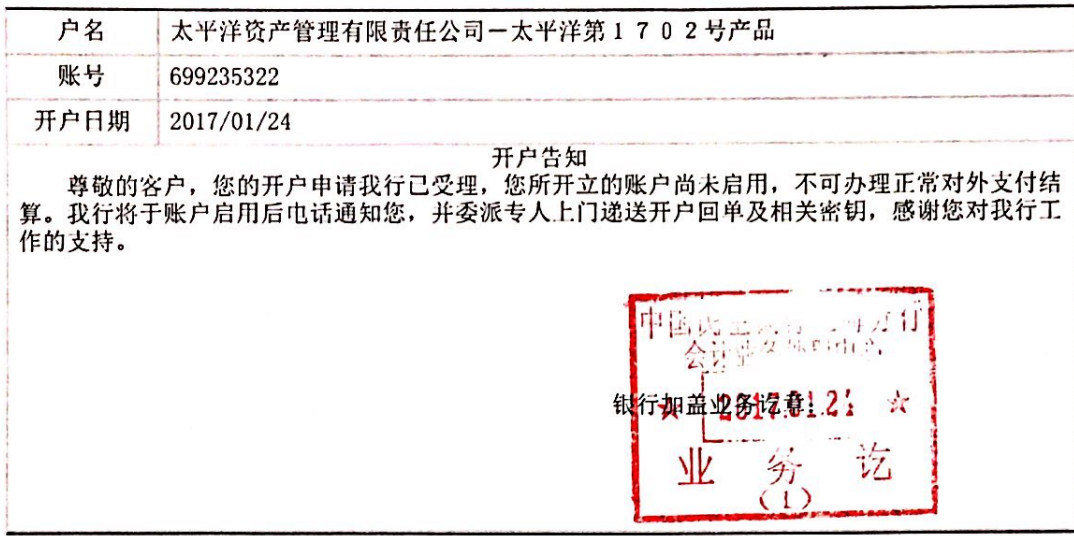 户名 太平洋资产管理有限责任公司－太平洋第１７０２号产品
账号 699235322
开户日期 2017/01/24
开户告知
尊敬的客户，您的开户申请我行已受理，您所开立的账户尚未启用，不可办理正常对外支付结
算。我行将于账户启用后电话通知您，并委派专人上门递送开户回单及相关密钥，感谢您对我行工
作的支持。
中国民生银行
会计业务
银行加盖业务讫章：
2017.01.24
业务讫
(1)